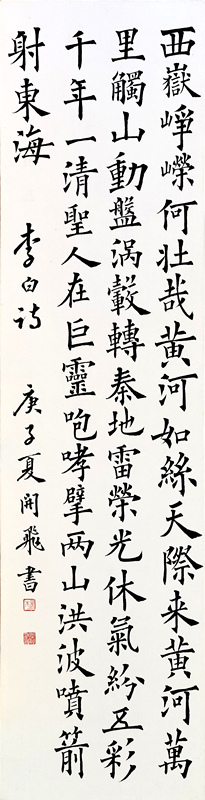 西嶽崢嶸何壯哉黃河如絲天際來黃河萬
里觸山動盤渦轂轉秦地雷榮光休氣紛五彩
千年一清聖人在巨靈咆哮擘兩山洪波噴箭
射東海
李白詩
庚子夏開飛書